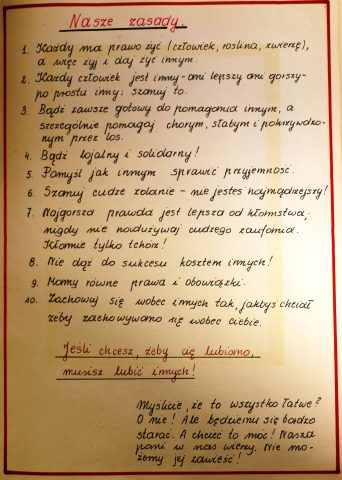 Nasze zasady.
1. Każdy ma prawo żyć (człowiek, roślina, zwierzę),
a więc żyj i daj żyć innym.
2. Każdy człowiek jest inny - ani lepszy ani gorszy -
po prostu inny; szanuj to.
3. Bądź zawsze gotowy do pomagania innym, a
szczególnie pomagaj chorym, słabym i pokrzywdzo-
nym przez los.
4. Bądź lojalny i solidarny!
5. Pomyśl jak innym sprawić przyjemność.
6. Szanuj cudze zdanie - nie jesteś najmądrzejszy!
7. Najgorsza prawda jest lepsza od kłamstwa,
nigdy nie nadużywaj cudzego zaufania.
Kłamie tylko tchórz!
8. Nie dąż do sukcesu kosztem innych!
9. Mamy równe prawa i obowiązki.
10. Zachowuj się wobec innych tak, jakbyś chciał
żeby zachowywano się wobec ciebie.
Jeśli chcesz, żeby cię lubiano,
musisz lubić innych!
Myślicie, że to wszystko łatwe?
O nie! Ale będziemy się bardzo
starać. A chcieć to móc! Nasza
pani w nas wierzy. Nie mo-
żemy jej zawieść!